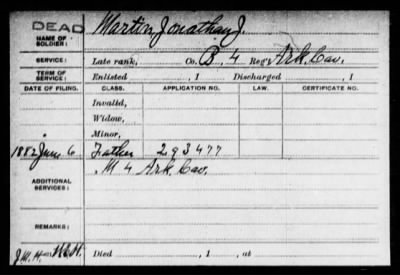 DEAD
NAME OF SOLDIER: Martin, Jonathan J.
SERVICE: Late rank, Co. B, 4 Reg't Ark. Cav.
TERM OF SERVICE: Enlisted , 1 Discharged , 1
DATE OF FILING. CLASS. APPLICATION NO. LAW. CERTIFICATE NO.
Invalid,
Widow,
Minor,
1882 June 6 Father 293477
ADDITIONAL SERVICES: M 4 Ark. Cav.
REMARKS:
Died , 1 , at